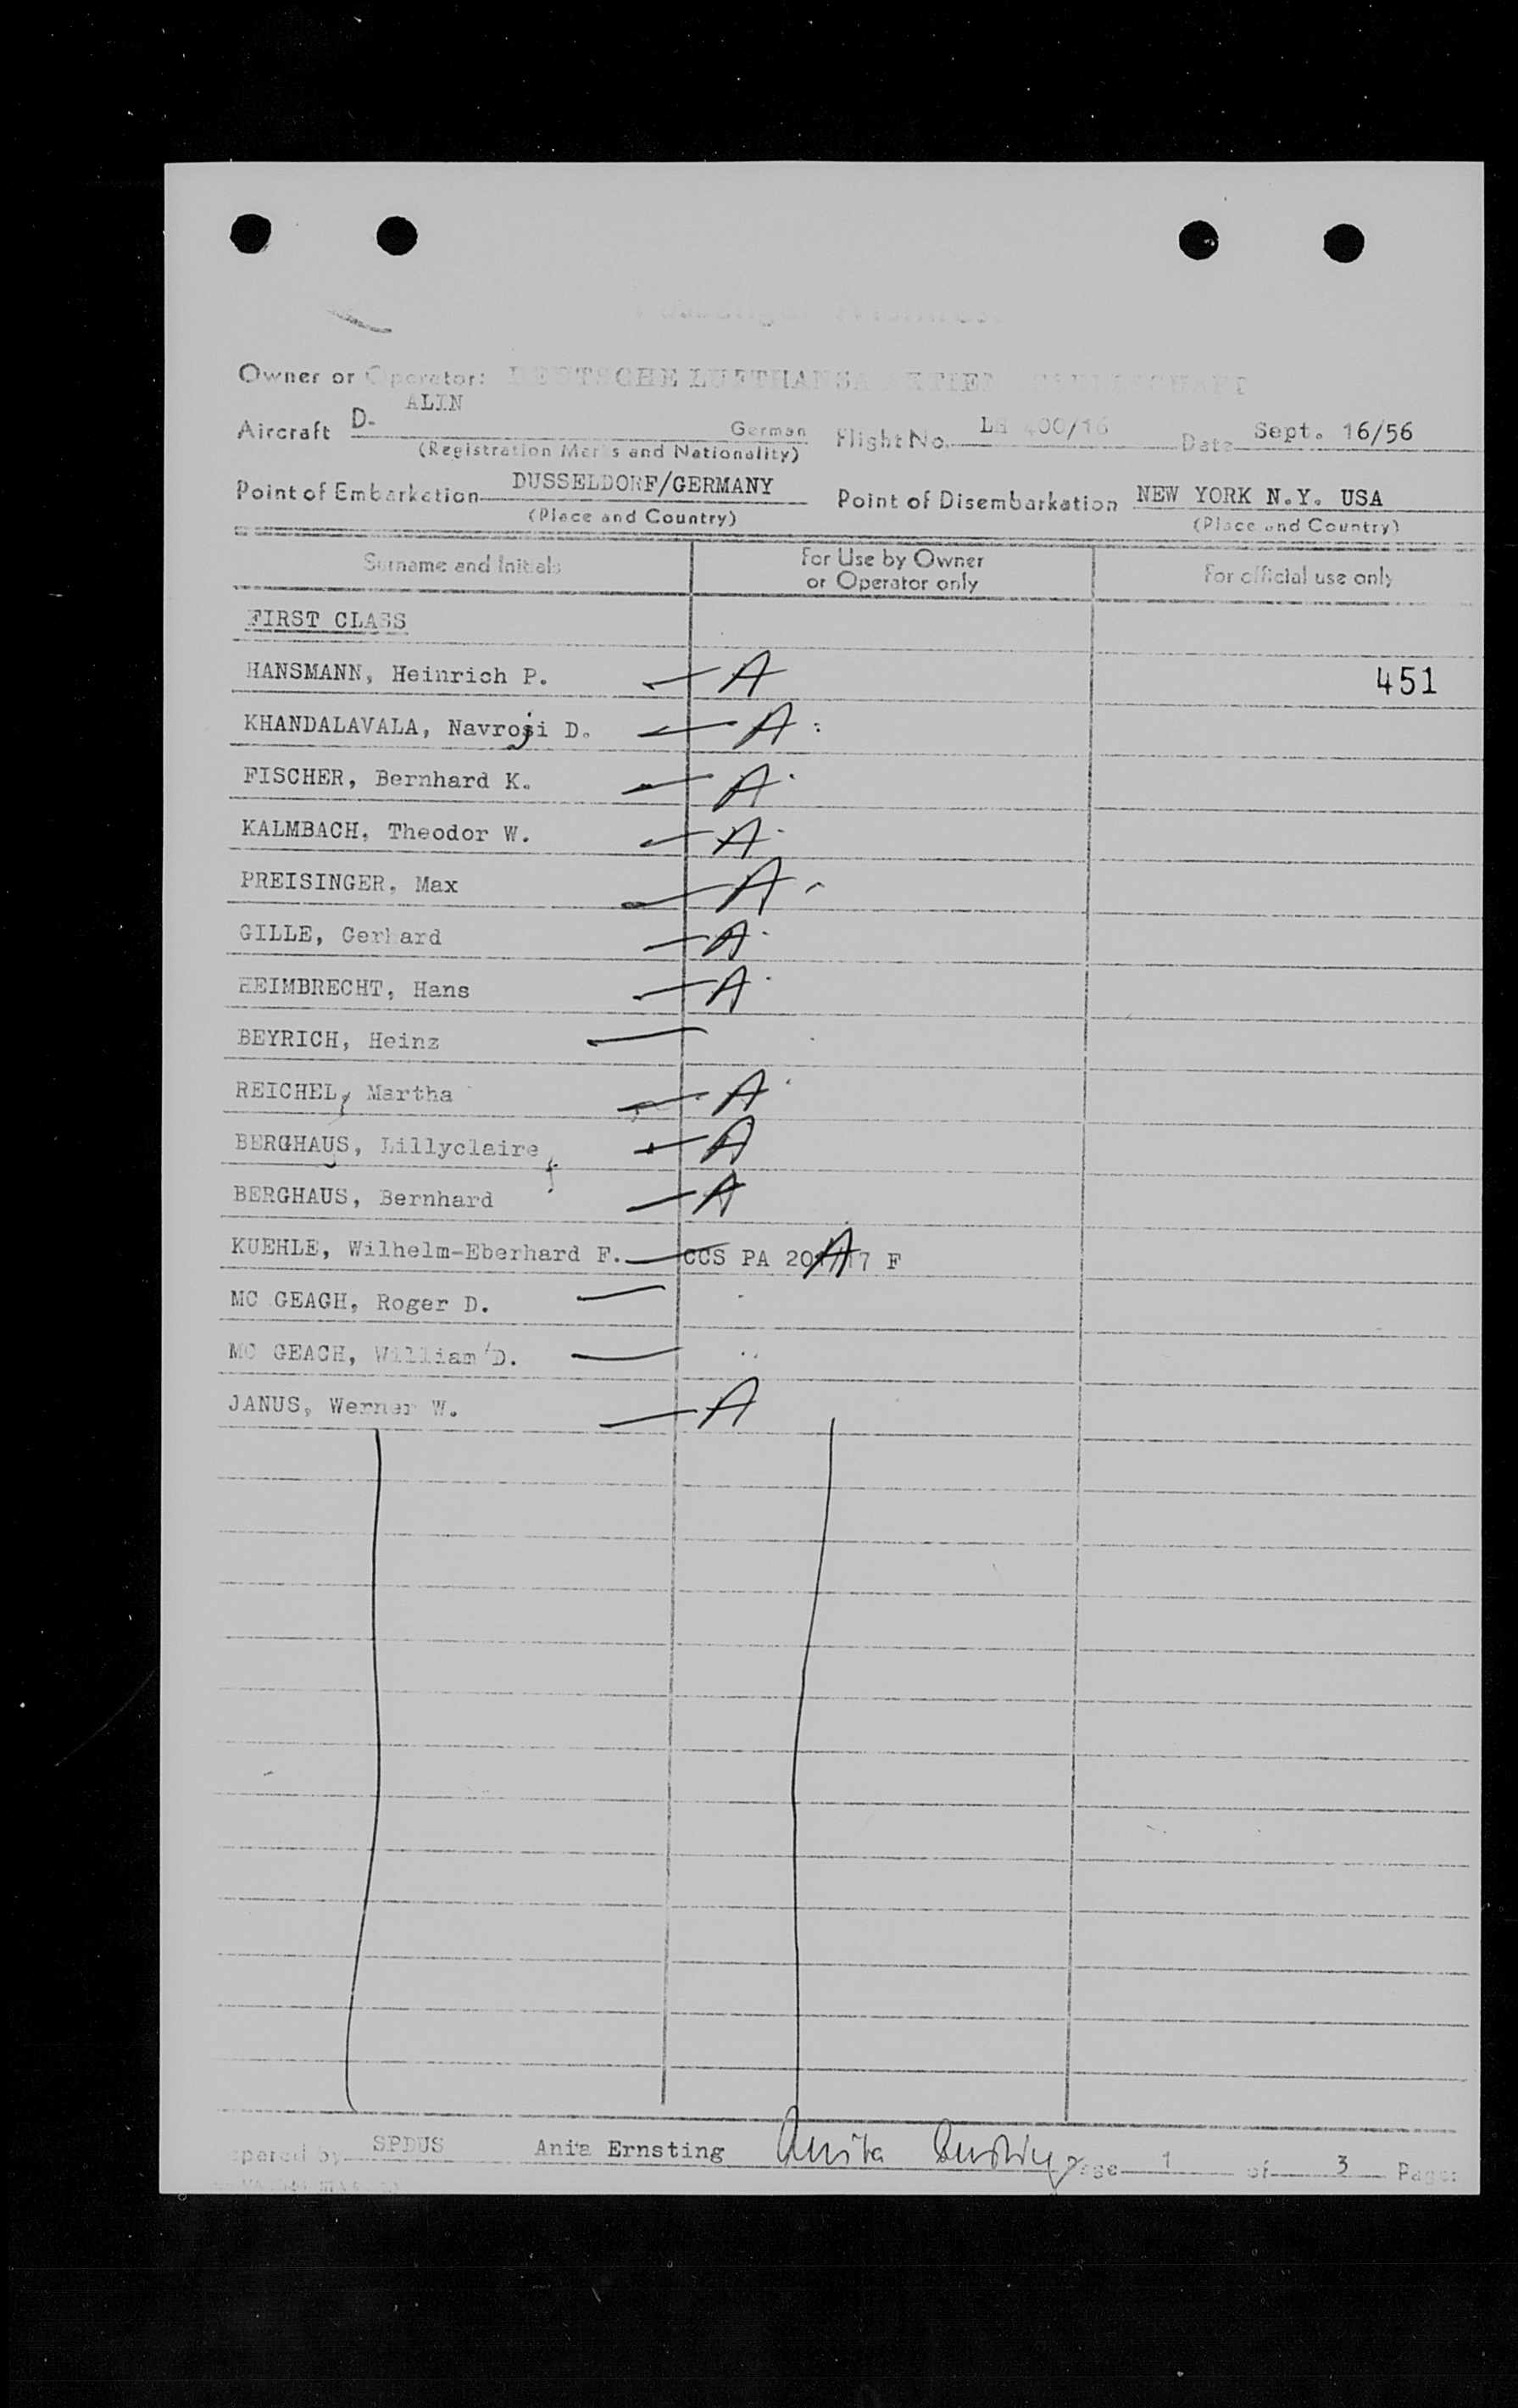 Owner or Operator: DEUTSCHE LUFTHANSA
Aircraft D- ALIN German Flight No. LH 400/16 Date Sept. 16/56
(Registration Marks and Nationality)
Point of Embarkation DUSSELDORF/GERMANY Point of Disembarkation NEW YORK N.Y. USA
(Place and Country) (Place and Country)
Surname and Initials For Use by Owner or Operator only For official use only
FIRST CLASS
HANSMANN, Heinrich P. A 451
KHANDALAVALA, Navroji D. A
FISCHER, Bernhard K. A
KALMBACH, Theodor W. A
PREISINGER, Max A
GILLE, Gerhard A
HEIMBRECHT, Hans A
BEYRICH, Heinz
REICHEL, Martha A
BERGHAUS, Lillyclaire A
BERGHAUS, Bernhard A
KUEHLE, Wilhelm-Eberhard F. CCS PA A F
MC GEAGH, Roger D.
MC GEACH, William D.
JANUS, Werner W. A
SPDUS Anita Ernsting Anita Ernsting Page 1 of 3 Pages